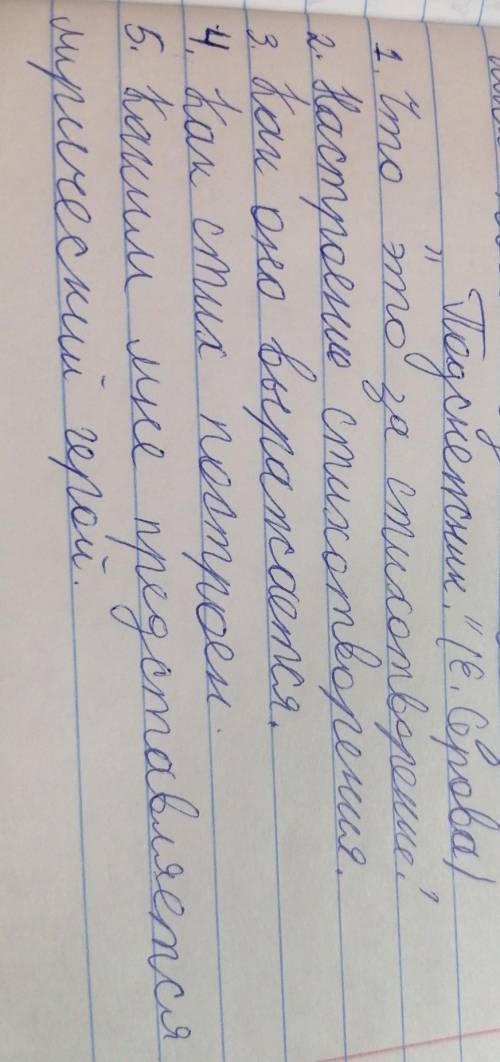 "Подснежник." (Е. Серова)
1. Что это за стихотворение?
2. Настроение стихотворения.
3. Как оно выражается.
4. Как стих построен.
5. Каким мне представляется
лирический герой.